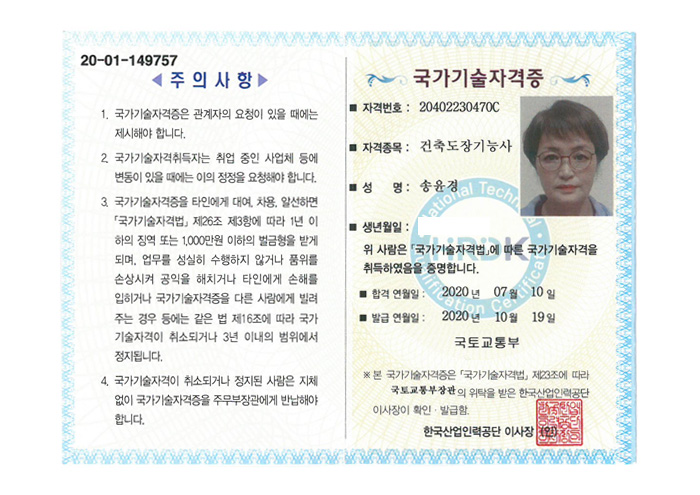 20-01-149757
◀ 주의사항 ▶
1. 국가기술자격증은 관계자의 요청이 있을 때에는
제시해야 합니다.
2. 국가기술자격취득자는 취업 중인 사업체 등에
변동이 있을 때에는 이의 정정을 요청해야 합니다.
3. 국가기술자격증을 타인에게 대여, 차용, 알선하면
「국가기술자격법」제26조 제3항에 따라 1년 이
하의 징역 또는 1,000만원 이하의 벌금형을 받게
되며, 업무를 성실히 수행하지 않거나 품위를
손상시켜 공익을 해치거나 타인에게 손해를
입히거나 국가기술자격증을 다른 사람에게 빌려
주는 경우 등에는 같은 법 제16조에 따라 국가
기술자격이 취소되거나 3년 이내의 범위에서
정지됩니다.
4. 국가기술자격이 취소되거나 정지된 사람은 지체
없이 국가기술자격증을 주무부장관에게 반납해야
합니다.
국가기술자격증
■ 자격번호 : 20402230470C
■ 자격종목 : 건축도장기능사
■ 성 명 : 송윤경
■ 생년월일 :
위 사람은 「국가기술자격법」에 따른 국가기술자격을
취득하였음을 증명합니다.
■ 합격 연월일 : 2020 년 07 월 10 일
■ 발급 연월일 : 2020 년 10 월 19 일
국토교통부
※ 본 국가기술자격증은 「국가기술자격법」 제23조에 따라
국토교통부장관의 위탁을 받은 한국산업인력공단
이사장이 확인 · 발급함.
한국산업인력공단 이사장 (인)
National Technical
Qualification Certificate
HRDK